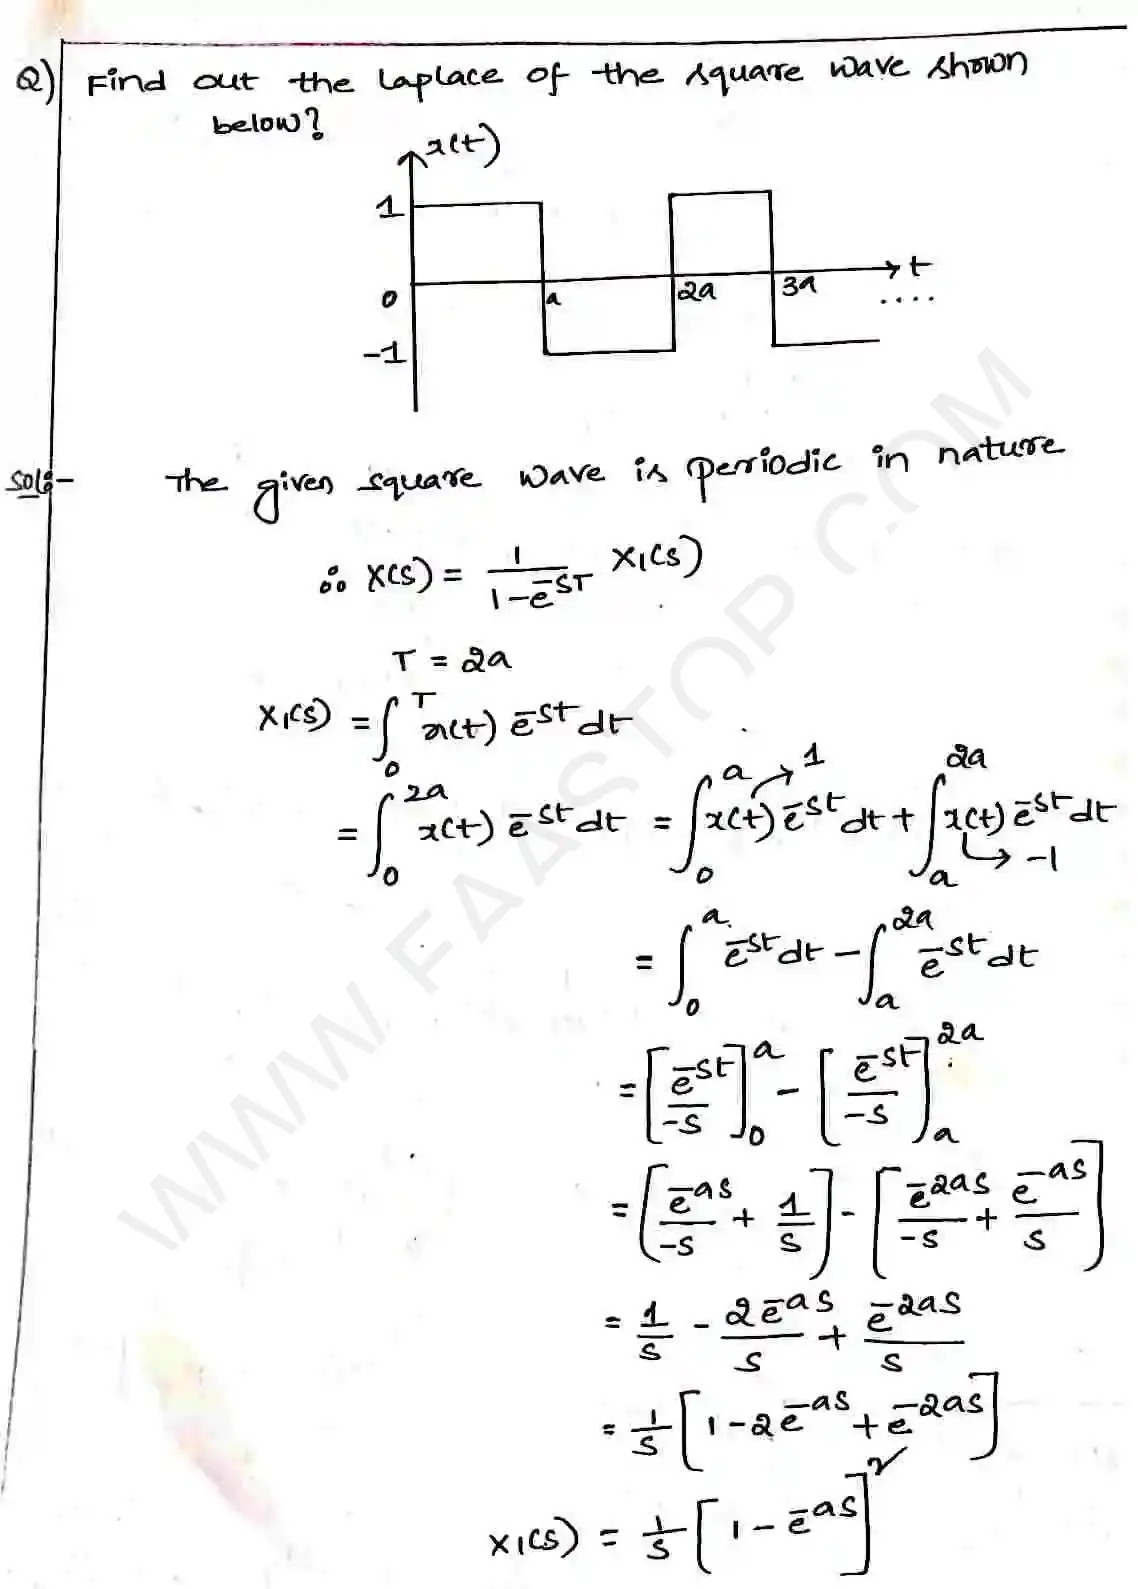 Q) Find out the Laplace of the square wave shown
below?
x(t)
1
0 a 2a 3a t
....
-1
Sol:- The given square wave is periodic in nature
∴ X(s) = 1/(1-e^-sT) X1(s)
T = 2a
X1(s) = ∫_0^T x(t) e^-st dt
= ∫_0^2a x(t) e^-st dt = ∫_0^a x(t) → 1 e^-st dt + ∫_a^2a x(t) → -1 e^-st dt
= ∫_0^a e^-st dt - ∫_a^2a e^-st dt
= [e^-st/-s]_0^a - [e^-st/-s]_a^2a
= [e^-as/-s + 1/s] - [e^-2as/-s + e^-as/s]
= 1/s - 2e^-as/s + e^-2as/s
= 1/s [1 - 2e^-as + e^-2as]
X1(s) = 1/s [1 - e^-as]^2
WWW.FAASTOP.COM